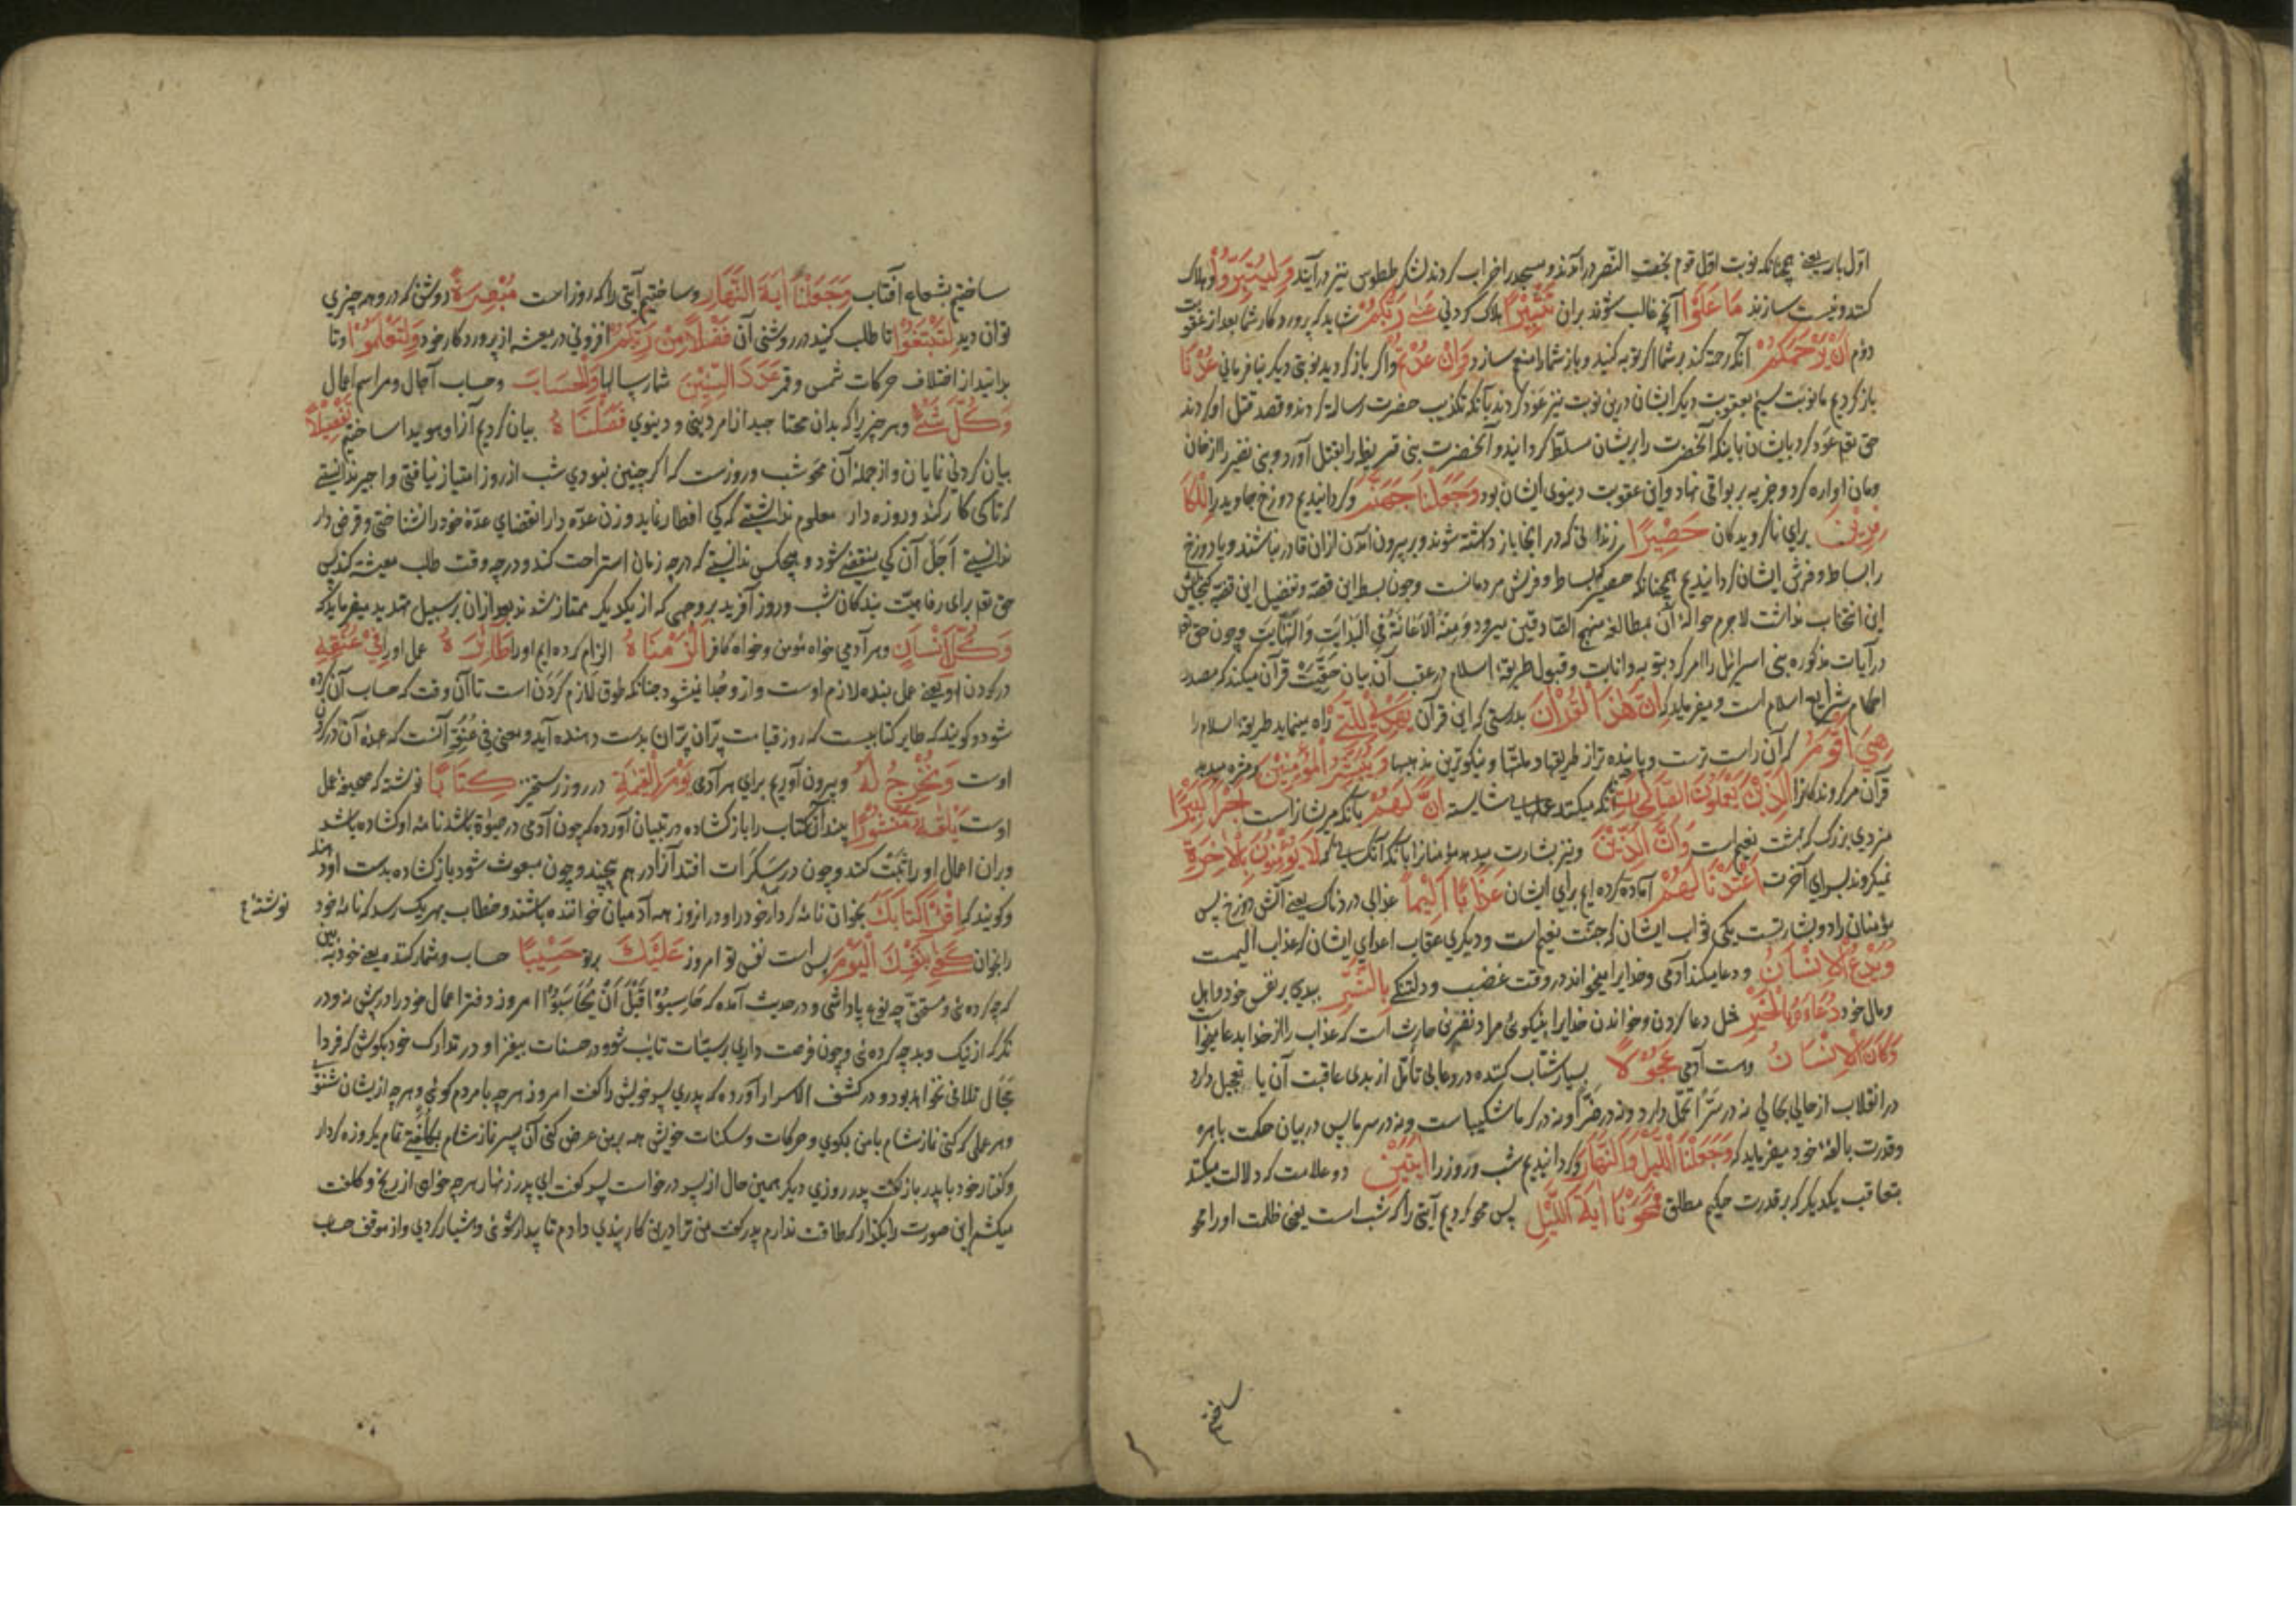 اول بار یعنے همچنانکه نوبت اول قوم بخت النصر درآمدند و مسجد را خراب کردند لشکر طیطوس نیز درآیند وَلِيُتَبِّرُوا و هلاک
کنند و نیست سازند مَا عَلَوْا آنچه غالب شوند بران تَتْبِيرًا هلاک کردنی عَسَى رَبُّكُمْ شاید که پروردکار شما بعد از عقوبت
دوم أَنْ يَرْحَمَكُمْ آنکه رحمت کند بر شما اکر توبه کنید و باز شما را منع سازد وَإِنْ عُدْتُمْ و اکر باز کردید نوبتی دیکر بنافرمانی عُدْنَا
باز کردیم ما نوبت سیم بعقوبت دیکر ایشان درین نوبت نیز عود کردند بآنکه تکذیب حضرت رسالت کردند و قصد قتل او کردند
حق تعم عود کرد بایشان باینکه آنحضرت را بریشان مسلط کردانید و آنحضرت بنی قریظه را بقتل آورد و بنی نضیر را از خان
ومان اواره کرد و جزیه بر بواقی نهاد و این عقوبت دینوی ایشان بود وَجَعَلْنَا جَهَنَّمَ و کردانیدیم دوزخ جاوید را لِلْكَا
فِرِينَ برای ناکرویدکان حَصِيرًا زندانی که در انجا باز داشته شوند و بر بیرون آمدن ازان قادر نباشند و یا دوزخ
را بساط و فرش ایشان کردانیدیم همچنانکه حصیر که بساط و فرش مردمانست و چون بسط این قصه و تفصیل این قضیه کنجایش
این انتخاب نداشت لاجرم حواله آن بمطالعه منهج الصادقین میرود وَمِنْهُ الْاِعَانَةُ فِي الْبِدَايَتِ وَالنِّهَايَتِ و چون حق تعم
در آیات مذکوره بنی اسرائیل را امر کرد بتوبه و انابت و قبول طریقه اسلام در عقب آن بیان حقیت قرآن میکند که مصدر
احکام شرایع اسلام است و میفرماید که إِنَّ هَذَا الْقُرْآنَ بدرستی که این قرآن يَهْدِي لِلَّتِي راه مینماید طریقه اسلام را
هِيَ أَقْوَمُ که آن راست ترست و پاینده تر از طریقها و ملتها و نیکوترین مذهبها وَيُبَشِّرُ الْمُؤْمِنِينَ و مژده میدهد
قرآن مر کروندکانرا الَّذِينَ يَعْمَلُونَ الصَّالِحَاتِ آنکه میکنند عملهای شایسته أَنَّ لَهُمْ بآنکه مریشانراست أَجْرًا كَبِيرًا
مزدی بزرک که بهشت نعیم است وَأَنَّ الَّذِينَ و نیز بشارت میدهد مؤمنانرا بآنکه آنکسانی که لَا يُؤْمِنُونَ بِالْآخِرَةِ
نمیکروند بسرای آخرت أَعْتَدْنَا لَهُمْ آماده کرده ایم برای ایشان عَذَابًا أَلِيمًا عذابی دردناک یعنے آتش دوزخ پس
مؤمنان را دو بشارتست یکی ثواب ایشان که جنت نعیم است و دیکری عقاب اعدای ایشان که عذاب الیمست
وَيَدْعُ الْإِنْسَانُ و دعا میکند آدمی و خدایرا میخواند در وقت غضب و دلتنکے بِالشَّرِّ ببدی بر نفس خود و اهل
و مال خود دُعَاءَهُ بِالْخَيْرِ مثل دعا کردن و خواندن خدایرا بنیکوئی مراد نضربن حارث است که عذاب را از خدا بدعا میخواست
وَكَانَ الْإِنْسَانُ وست آدمی عَجُولًا بسیار شتاب کننده در دعا بی تأمل از بدی عاقبت آن یا تعجیل دارد
در انقلاب از حالی بحالی نه در سرّا تحمل دارد و نه در ضرّا و نه در کرما شکیباست و نه در سرما پس در بیان حکمت باهره
و قدرت بالغه خود میفرماید که وَجَعَلْنَا اللَّيْلَ وَالنَّهَارَ و کردانیدیم شب و روز را آيَتَيْنِ دو علامت که دلالت میکند
بتعاقب یکدیکر که بر قدرت حکیم مطلق فَمَحَوْنَا آيَةَ اللَّيْلِ پس محو کردیم آیتی را که شب است یعنی ظلمت او را محو
ساختیم
ساختیم بشعاع آفتاب وَجَعَلْنَا آيَةَ النَّهَارِ و ساختیم آیتی را که روز است مُبْصِرَةً روشن که درو هر چیزی
توان دید لِتَبْتَغُوا تا طلب کنید در روشنی آن فَضْلًا مِنْ رَبِّكُمْ افزونی در معیشه از پروردکار خود وَلِتَعْلَمُوا و تا
بدانید از اختلاف حرکات شمس و قمر عَدَدَ السِّنِينَ شمار سالها وَالْحِسَابَ و حساب آجال و مراسم اعمال
وَكُلَّ شَيْءٍ و هر چیزیرا که بدان محتاجید از امر دینی و دینوی فَصَّلْنَاهُ بیان کردیم آنرا و هویدا ساختیم تَفْصِيلًا
بیان کردنی نمایان و از جمله آن محو شب و روزست که اکر چنین نبودی شب از روز امتیاز نیافتی و اجیر ندانستے
که تا کی کار کند و روزه دار معلوم نداشتے که کی افطار نماید و زن عده دار انقضای عده خود را نشناختی و قرض دار
ندانستے اَجَل آن کی منقضے شود و هیچکس ندانستے که در چه زمان استراحت کند و در چه وقت طلب معیشه کند پس
حق تعم برای رفاهیت بندکان شب و روز آفرید بر وجهی که از یکدیکر ممتاز شدند بعد ازان بر سبیل تهدید میفرماید که
وَكُلَّ إِنْسَانٍ و هر آدمی خواه مؤمن و خواه کافر أَلْزَمْنَاهُ الزام کرده ایم او را طَائِرَهُ عمل او را فِي عُنُقِهِ
در کردن او یعنے عمل بنده لازم اوست و ازو جدا نمیشود چنانکه طوق لازم کردن است تا آن وقت که حساب آن کرده
شود و کویند که طایر کتابیست که روز قیامت پرّان پرّان بدست دهنده آید و معنی فِي عُنُقِهِ آنست که عهده آن در کردن
اوست وَنُخْرِجُ لَهُ و بیرون آوریم برای هر آدمی يَوْمَ الْقِيَمَةِ در روز رستخیز كِتَابًا نوشته که صحیفه عمل
اوست يَلْقَاهُ مَنْشُورًا بیند آن کتاب را باز کشاده در تبیان آورده که چون آدمی در حیوة باشد نامه او کشاده باشد
و دران اعمال او را ثبت کنند و چون در سکرات افتد آنرا در هم پیچند و چون مبعوث شود باز کشاده بدست او دهند
و کویند که اقْرَأْ كِتَابَكَ بخوان نامه کردار خود را و در انروز همه آدمیان خواننده باشند و خطاب بهریک رسد که نامه خود
نوشته ع
را بخوان كَفَى بِنَفْسِكَ الْيَوْمَ بس است نفس تو امروز عَلَيْكَ بر تو حَسِيبًا حساب و شمار کننده یعنے خود ببین
که چه کرده ئی و مستحق چه نوع پاداشی و در حدیث آمده که حَاسِبُوْا قَبْلَ أَنْ يُحَاسَبُوْا امروز دفتر اعمال خود را در پیش نه و در
نکر که از نیک و بد چه کرده ئی و چون فرصت داری از سیئات تایب شو و در حسنات بیفزا و در تدارک خود بکوش که فردا
مجال تلافی نخواهد بود و در کشف الاسرار آورده که پدری پسر خویش را کفت امروز هرچه با مردم کوئی و هرچه ازیشان شنوی
و هر عملی که کنی نماز شام با من بکوی و حرکات و سکنات خویش همه برمن عرض کن آن پسر نماز شام بکلفتے تمام یکروزه کردار
و کفتار خود با پدر باز کفت پدر روزی دیکر همین حال از پسر درخواست پسر کفت ای پدر زنهار هرچه خواهی از رنج و کلفت
میکشم این صورت را بکذار که طاقت ندارم پدر کفت من ترا درین کار پندی دادم تا بیدار شوئی و هشیار کردی و از موقف حساب